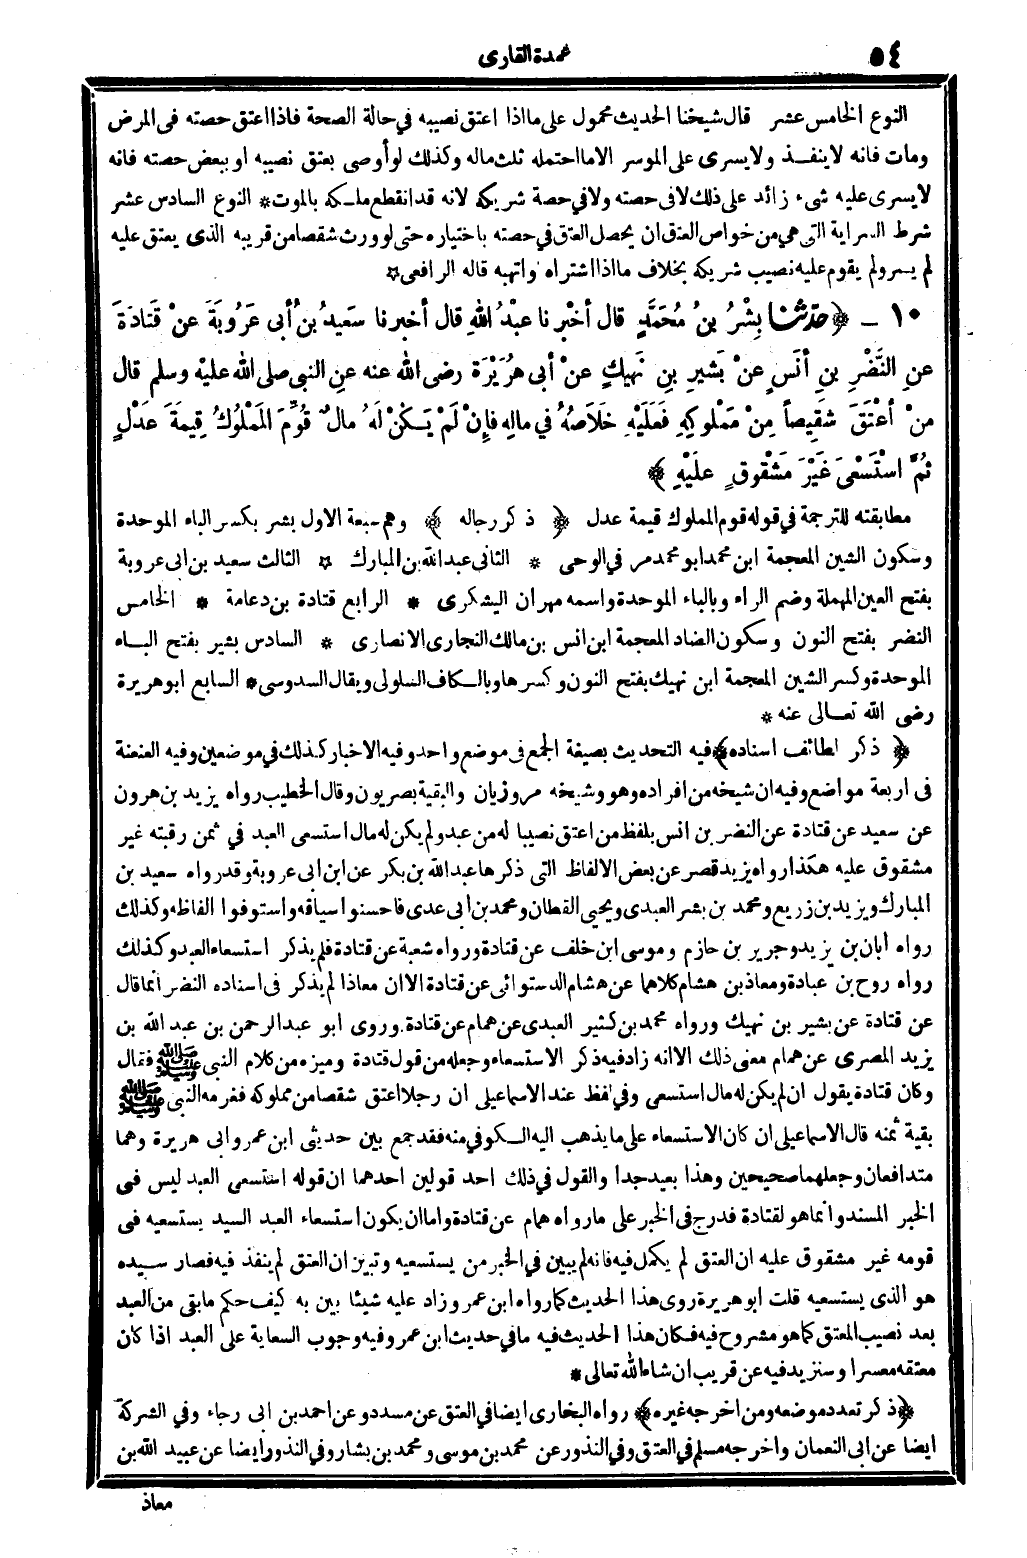 ٥٤
عمدة القارى
النوع الخامس عشر قال شيخنا الحديث محمول على ما اذا اعتق نصيبه في حالة الصحة فاذا اعتق حصته فى المرض
ومات فانه لا ينفذ ولا يسرى على الموسر الا ما احتمله ثلث ماله وكذلك لو أوصى بعتق نصيبه او ببعض حصته فانه
لا يسرى عليه شىء زائد على ذلك لا فى حصته ولا في حصة شريكه لانه قد انقطع ملكه بالموت * النوع السادس عشر
شرط السراية التى هي من خواص العتق ان يحصل العتق في حصته باختياره حتى لو ورث شقصا من قريبه الذى يعتق عليه
لم يسر ولم يقوم عليه نصيب شريكه بخلاف ما اذا اشتراه واتهبه قاله الرافعى *
١٠ - ﴿ حدّثنا بِشْرُ بنُ مُحَمَّدٍ قال أخْبرنا عبدُ اللهِ قال أخبرنا سَعيدُ بنُ أبى عَرُوبَةَ عنْ قَتَادَةَ
عنِ النَّضْرِ بنِ أنَسٍ عنْ بَشيرِ بنِ نَهِيكٍ عنْ أبى هُرَيْرَةَ رضى الله عنه عنِ النبى صلى الله عليْه وسلم قال
منْ أعْتَقَ شَقِيصاً مِنْ مَمْلُوكِهِ فَعَلَيْهِ خَلَاصُهُ في مالِهِ فإِنْ لَمْ يَكُنْ لَهُ مالٌ قُوِّمَ المَمْلُوكُ قِيمَةَ عَدْلٍ
ثُمَّ اسْتُسْعِىَ غَيْرَ مَشْقُوقٍ علَيْهِ ﴾
مطابقته للترجمة في قوله قوم المملوك قيمة عدل ﴿ ذكر رجاله ﴾ وهم سبعة الاول بشر بكسر الباء الموحدة
وسكون الشين المعجمة ابن محمد ابو محمد مر في الوحى * الثانى عبد الله بن المبارك * الثالث سعيد بن ابى عروبة
بفتح العين المهملة وضم الراء وبالباء الموحدة واسمه مهران اليشكرى * الرابع قتادة بن دعامة * الخامس
النضر بفتح النون وسكون الضاد المعجمة ابن انس بن مالك النجارى الانصارى * السادس بشير بفتح الباء
الموحدة وكسر الشين المعجمة ابن نهيك بفتح النون وكسر ها وبالكاف السلولى ويقال السدوسى * السابع ابو هريرة
رضى الله تعالى عنه *
﴿ ذكر لطائف اسناده ﴾ فيه التحديث بصيغة الجمع فى موضع واحد وفيه الاخبار كذلك في موضعين وفيه العنعنة
فى اربعة مواضع وفيه ان شيخه من افراده وهو وشيخه مروزيان والبقية بصريون وقال الخطيب رواه يزيد بن هرون
عن سعيد عن قتادة عن النضر بن انس بلفظ من اعتق نصيبا له من عبد ولم يكن له مال استسعى العبد في ثمن رقبته غير
مشقوق عليه هكذا رواه يزيد قصر عن بعض الالفاظ التى ذكرها عبد الله بن بكر عن ابن ابى عروبة وقد رواه سعيد بن
المبارك ويزيد بن زريع ومحمد بن بشر العبدى ويحيى القطان ومحمد بن ابى عدى فاحسنوا سياقه واستوفوا الفاظه وكذلك
رواه أبان بن يزيد وجرير بن حازم وموسى ابن خلف عن قتادة ورواه شعبة عن قتادة فلم يذكر استسعاء العبد وكذلك
رواه روح بن عبادة ومعاذ بن هشام كلاهما عن هشام الدستوائى عن قتادة الا ان معاذا لم يذكر فى اسناده النضر انما قال
عن قتادة عن بشير بن نهيك ورواه محمد بن كثير العبدى عن همام عن قتادة وروى ابو عبد الرحمن بن عبد الله بن
يزيد المصرى عن همام معنى ذلك الا انه زاد فيه ذكر الاستسعاء وجعله من قول قتادة وميزه من كلام النبى صلى الله عليه وسلم فقال
وكان قتادة يقول ان لم يكن له مال استسعى وفي لفظ عند الاسماعيلى ان رجلا اعتق شقصا من مملوكه فغرمه النبى صلى الله عليه وسلم
بقية ثمنه قال الاسماعيلى ان كان الاستسعاء على ما يذهب اليه الكوفي منه فقد جمع بين حديثى ابن عمر وابى هريرة وهما
متدافعان وجعلهما صحيحين وهذا بعيد جدا والقول في ذلك احد قولين احدهما ان قوله استسعى العبد ليس فى
الخبر المسند وانما هو لقتادة فدرج فى الخبر على ما رواه همام عن قتادة واما ان يكون استسعاء العبد السيد يستسعيه فى
قومه غير مشقوق عليه ان العتق لم يكمل فيه فانه لم يبين في الخبر من يستسعيه وتبين ان العتق لم ينفذ فيه فصار سيده
هو الذى يستسعيه قلت ابو هريرة روى هذا الحديث كما رواه ابن عمر وزاد عليه شيئا بين به كيف حكم ما بقى من العبد
بعد نصيب المعتق كما هو مشروح فيه فكان هذا الحديث فيه ما في حديث ابن عمر وفيه وجوب السعاية على العبد اذا كان
معتقه معسرا وسنزيد فيه عن قريب ان شاء الله تعالى *
﴿ ذكر تعدد موضعه ومن اخرجه غيره ﴾ رواه البخارى ايضا في العتق عن مسدد وعن احمد بن ابى رجاء وفي الشركة
ايضا عن ابى النعمان واخرجه مسلم في العتق وفي النذور عن محمد بن موسى ومحمد بن بشار وفي النذور ايضا عن عبيد الله بن
معاذ